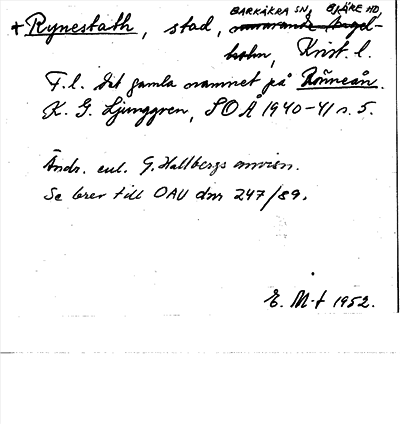 BARKÅKRA SN, BJÄRE HD,
+ Rynestath, stad, nuvarande Ängel-
holm, Krist. l.
F.l. det gamla namnet på Rönneån.
K. G. Ljunggren, SOÅ 1940-41 s. 5.
Ändr. enl. G. Hallbergs anvisn.
Se brev till OAU dnr 247/89.
E. M-t 1952.